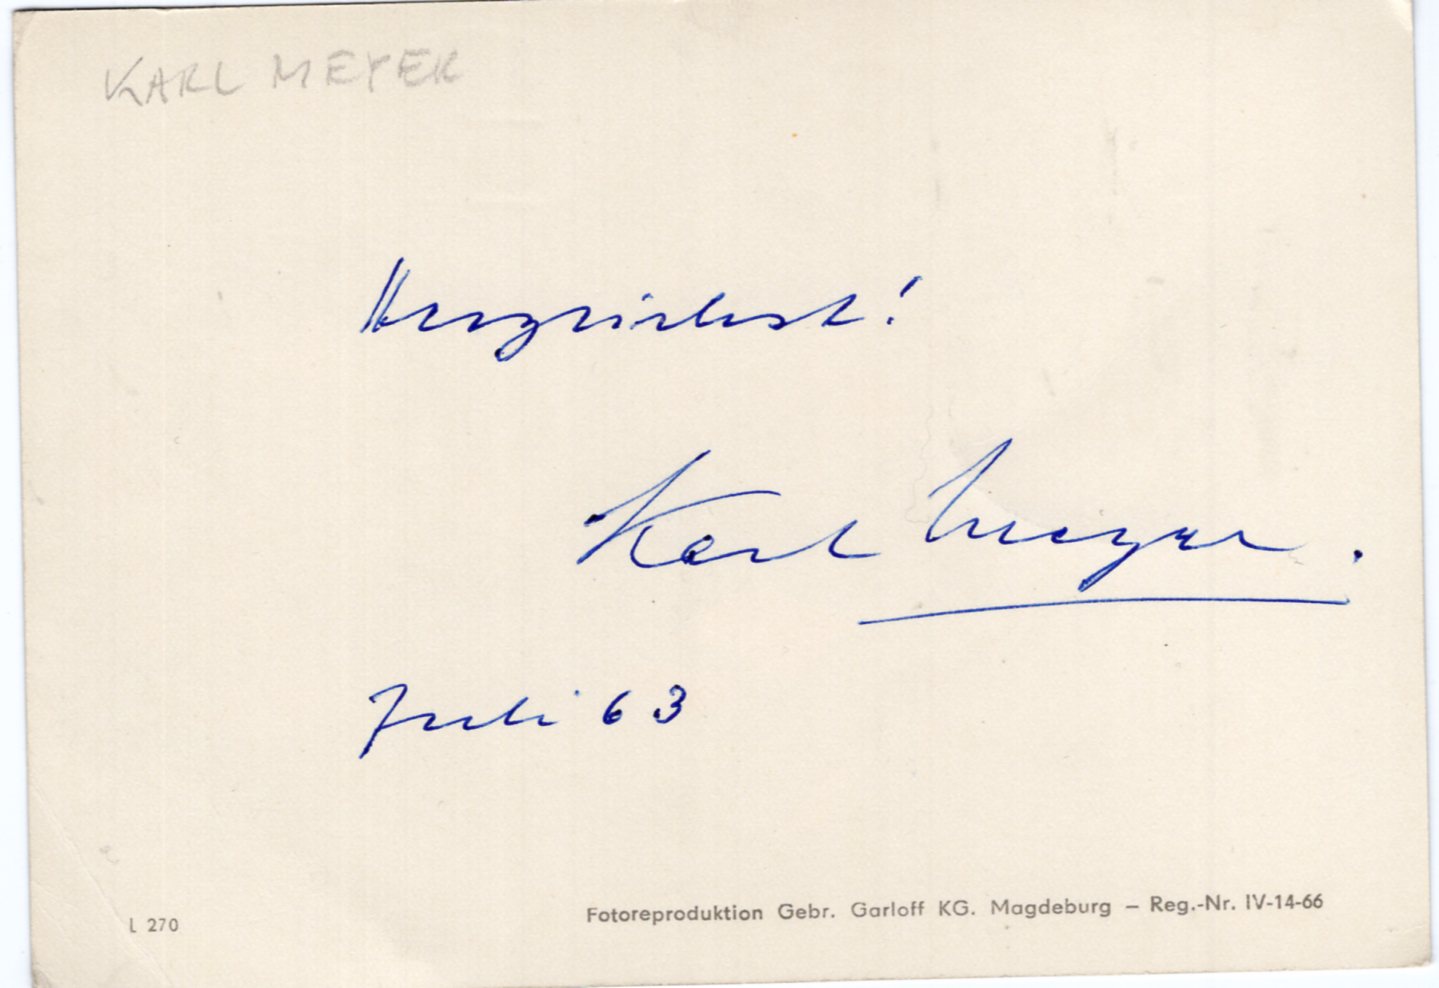 KARL MEYER
Herzlichst!
Karl Meyer.
Juli 63
L 270 Fotoreproduktion Gebr. Garloff KG. Magdeburg – Reg.-Nr. IV-14-66